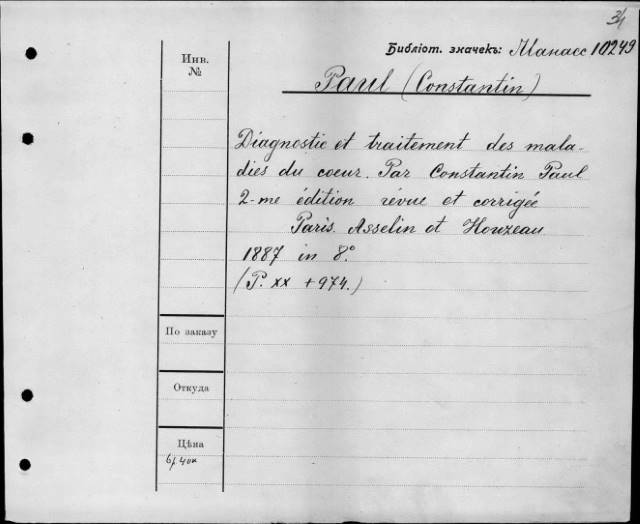 3/4
Библіот. значекъ: Манасс 10249
Инв.
№
Paul (Constantin)
Diagnostic et traitement des mala-
dies du coeur. Par Constantin Paul
2-me édition révue et corrigée
Paris. Asselin et Houzeau
1887 in 8°.
(P. xx + 974.)
По заказу
Откуда
Цѣна
6р. 40к